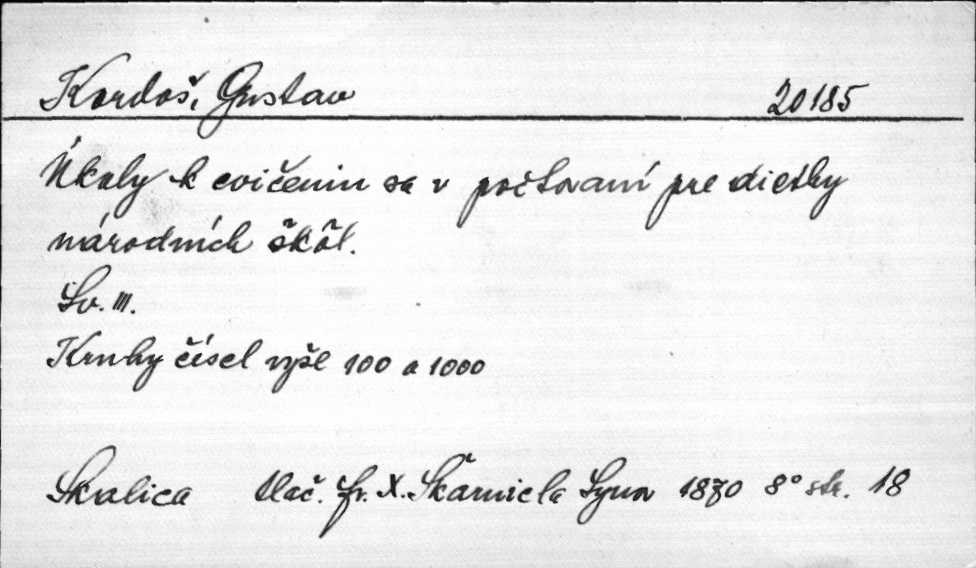 Kordoš, Gustav 20185
Úkoly k cvičeniu sa v počtovaní pre dietky
národních škôl.
Sv. III.
Kruhy čísel vyše 100 a 1000
Skalica tlač. Fr. X. Škarnicla Synov 1870 8° str. 18